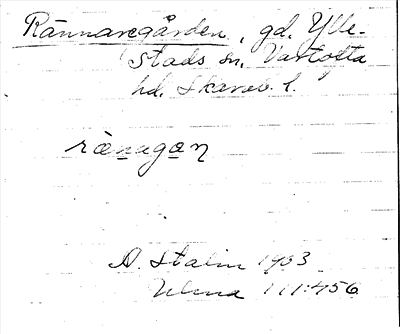 Rännaregården, gd, Ylle-
stads sn, Vartofta
hd. Skarab. l.
rænagan
A. Stalin 1903
Ulma 111:456